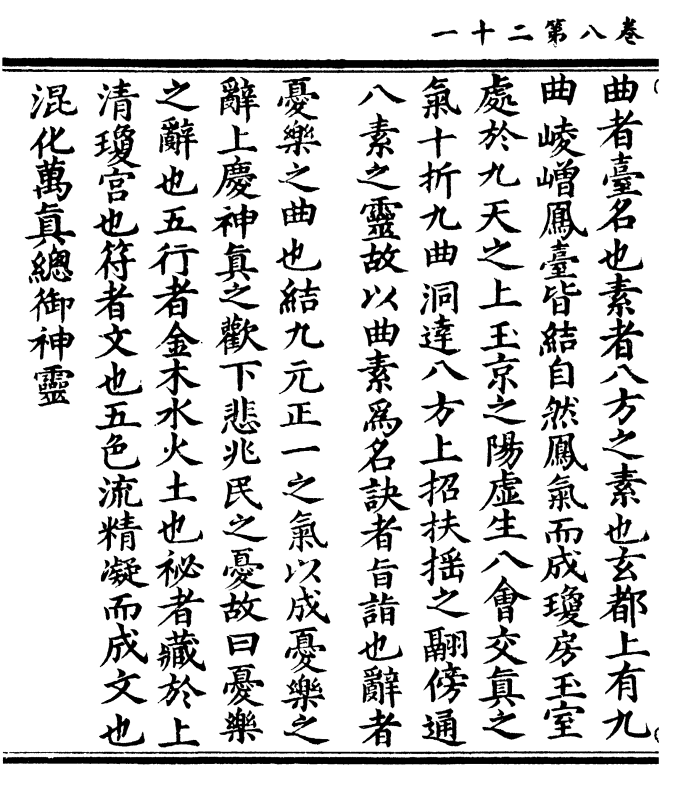 卷八第二十一
曲者臺名也素者八方之素也玄都上有九
曲崚嶒鳳臺皆結自然鳳氣而成瓊房玉室
處於九天之上玉京之陽虛生八會交眞之
氣十折九曲洞達八方上招扶搖之翮傍通
八素之靈故以曲素爲名訣者旨詣也辭者
憂樂之曲也結九元正一之氣以成憂樂之
辭上慶神眞之歡下悲兆民之憂故曰憂樂
之辭也五行者金木水火土也祕者藏於上
清瓊宫也符者文也五色流精凝而成文也
混化萬眞總御神靈